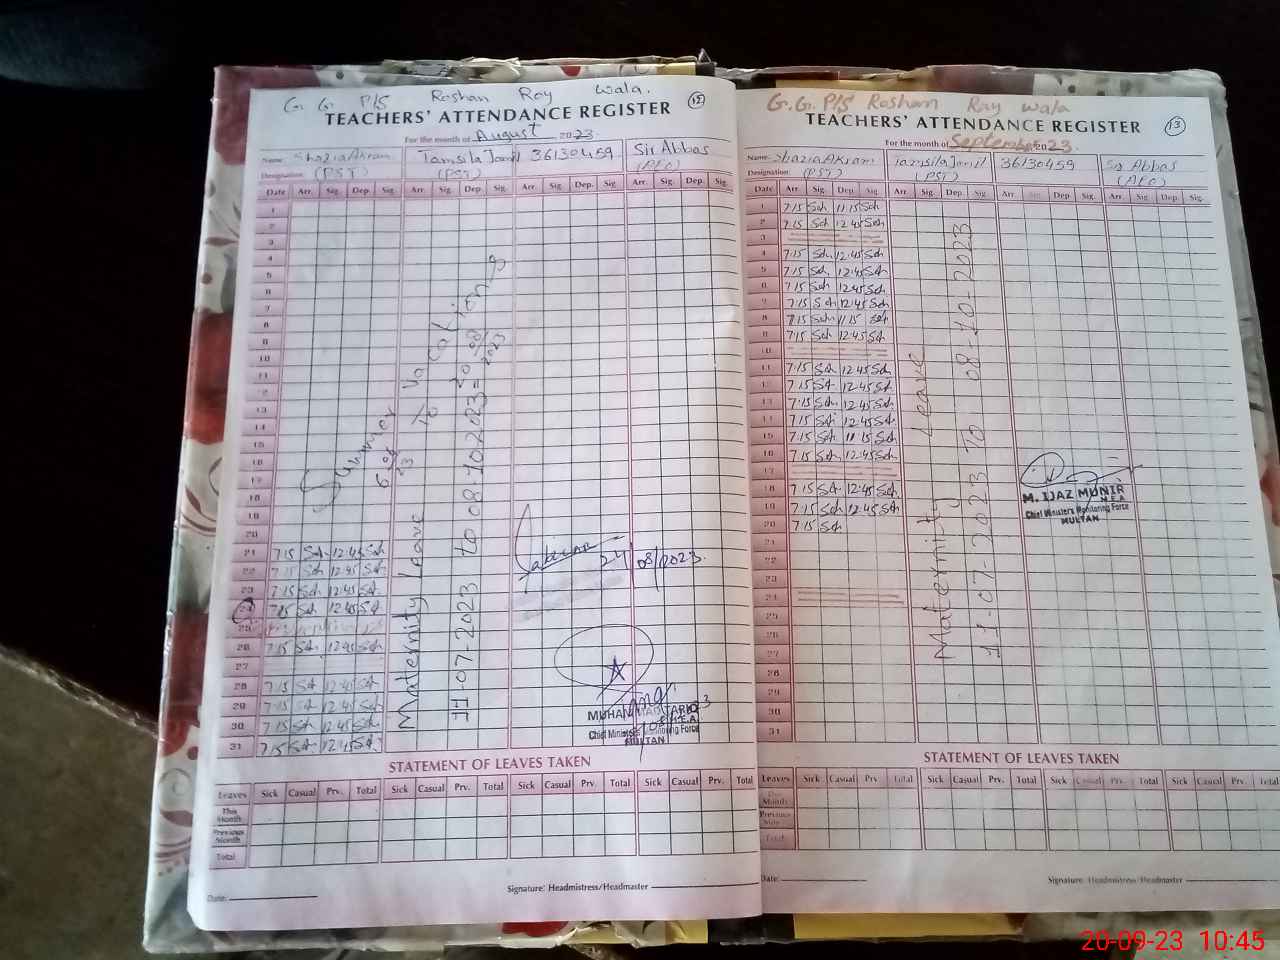 G. G. P/S Roshan Ray wala.
TEACHERS' ATTENDANCE REGISTER
12
For the month of August 2023
Name: Shazia Akram Tamsila Jamil 36130459 Sir Abbas
Designation: (PST) (PST) (AEO)
Date Arr. Sig. Dep. Sig. Arr. Sig. Dep. Sig. Arr. Sig. Dep. Sig. Arr. Sig. Dep. Sig.
1
2
3
4
5
6
7
8
9
10
11
12
13
14
15
16
17
18
19
20
21 7:15 12:45
22 7:15 12:45
23 7:15 12:45
24 7:15 12:45
25
26 7:15 12:45
27
28 7:15 12:45
29 7:15 12:45
30 7:15 12:45
31 7:15
Summer Vacation
To
Maternity Leave
11-07-2023 to 08-10-2023
24/08/2023
MUHAMMAD TARIQ
M.E.A.
Chief Minister's Monitoring Force
MULTAN
STATEMENT OF LEAVES TAKEN
Leaves Sick Casual Prv. Total Sick Casual Prv. Total Sick Casual Prv. Total Sick Casual Prv. Total
This Month
Previous Month
Total
Date:
Signature: Headmistress/Headmaster
G.G. P/S Roshan Ray wala
TEACHERS' ATTENDANCE REGISTER
13
For the month of September 2023
Name: Shazia Akram Tamsila Jamil 36130459 Sir Abbas
Designation: (PST) (PST) (AEO)
Date Arr. Sig. Dep. Sig. Arr. Sig. Dep. Sig. Arr. Sig. Dep. Sig. Arr. Sig. Dep. Sig.
1 7:15 Sch 11:15 Sch
2 7:15 Sch 12:45 Sch
3
4 7:15 Sch 12:45 Sch
5 7:15 Sch 12:45 Sch
6 7:15 Sch 12:45 Sch
7 7:15 Sch 12:45 Sch
8 7:15 Sch 11:15 Sch
9 7:15 Sch 12:45 Sch
10
11 7:15 Sch 12:45 Sch
12 7:15 Sch 12:45 Sch
13 7:15 Sch 12:45 Sch
14 7:15 Sch 12:45 Sch
15 7:15 Sch 11:15 Sch
16 7:15 Sch 12:45 Sch
17
18 7:15 Sch 12:45 Sch
19 7:15 Sch 12:45 Sch
20 7:15 Sch
21
22
23
24
25
26
27
28
29
30
31
Maternity Leave
11-07-2023 To 08-10-2023
M. IJAZ MUNIR
M.E.A.
Chief Minister's Monitoring Force
MULTAN
STATEMENT OF LEAVES TAKEN
Leaves Sick Casual Prv. Total Sick Casual Prv. Total Sick Casual Prv. Total Sick Casual Prv. Total
This Month
Previous Month
Total
Date:
Signature: Headmistress/Headmaster
20-09-23 10:45